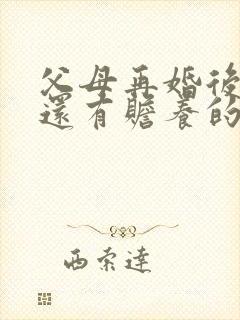 父母再婚後
還有贍養的
西索達